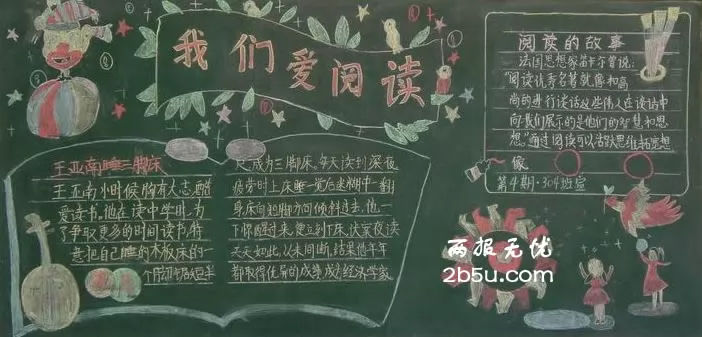 我们爱阅读
王亚南睡三脚床
王亚南小时候胸有大志,酷
爱读书。他在读中学时,为
了争取更多的时间读书,特
意把自己睡的木板床的一
个脚锯短半
尺,成为三脚床。每天读到深夜
疲劳时上床睡一觉后迷糊中一翻
身,床向短脚方向倾斜过去,他一
下惊醒过来,便立刻下床,伏案夜读
天天如此,从未间断,结果他年年
都取得优异的成绩,成为经济学家
阅读的故事
法国思想家笛卡尔曾说:
“阅读优秀名著就像和高
尚的进行谈话这些伟人在谈话中
向我们展示的是他们的智慧和思
想。”通过阅读可以活跃思维拓宽想
像
第4期·304班宣
两报无忧
2b5u.com